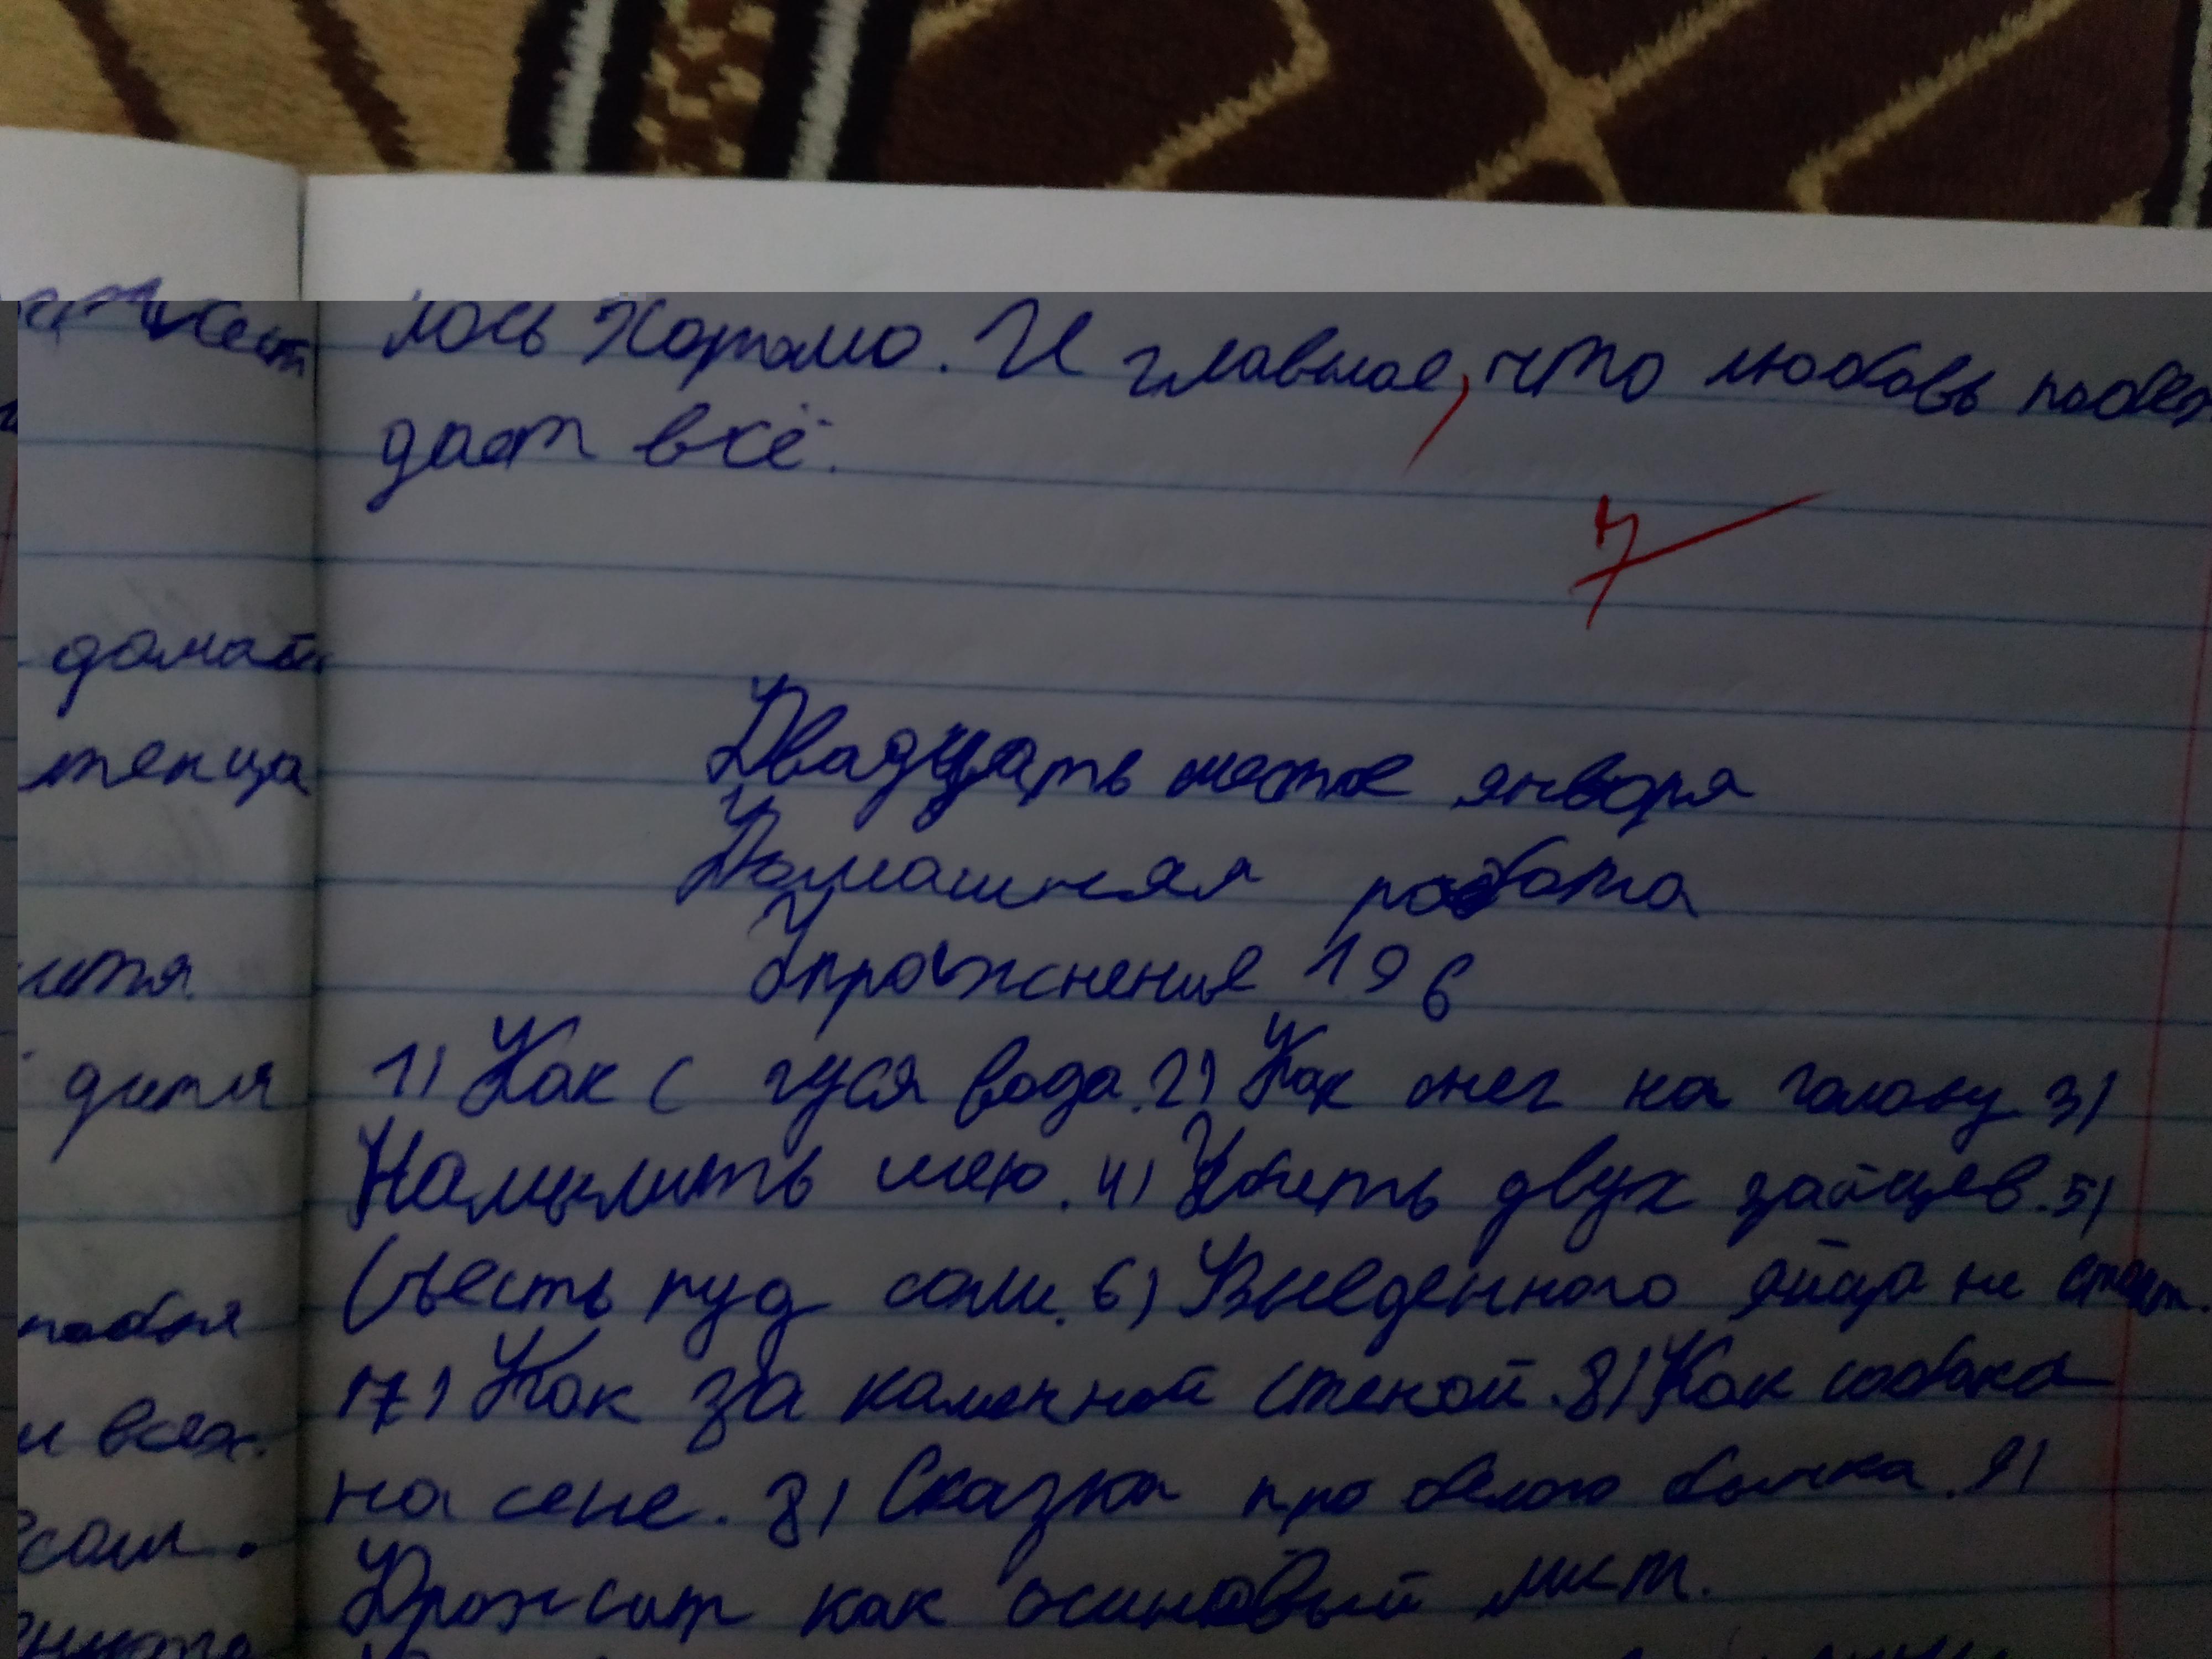 лось хорошо. И главное, что любовь побеж
дает всё.
7
домаш
тенца
Двадцать шестое января
Домашняя работа
Упражнение 196
дитя 1) Как с гуся вода. 2) Как снег на голову 3)
Намылить шею. 4) Убить двух зайцев. 5)
Съесть пуд соли. 6) Выеденного яйца не стоит.
7) Как за каменной стеной. 8) Как собака
и всех.
на сене. 8) Сказка про белого бычка. 9)
Дрожит как осиновый лист.